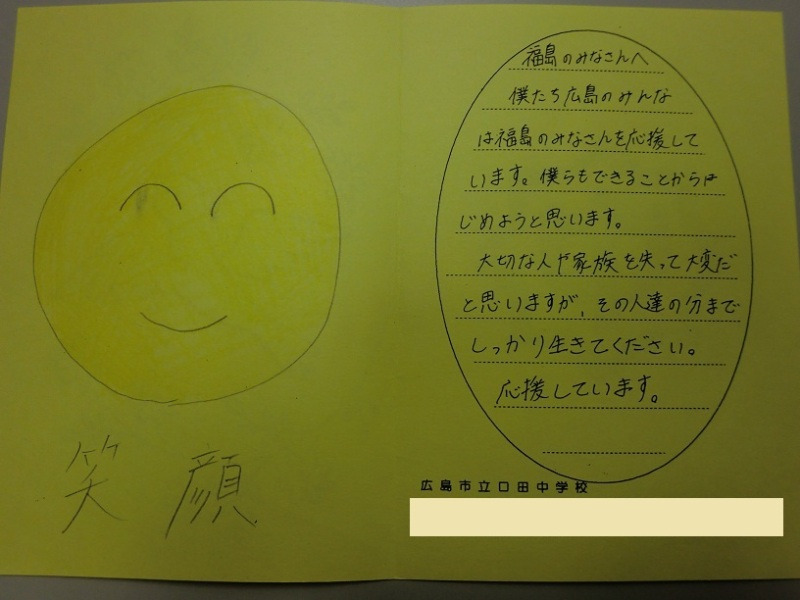 笑顔
福島のみなさんへ
僕たち広島のみんな
は福島のみなさんを応援して
います。僕らもできることからは
じめようと思います。
大切な人や家族を失って大変だ
と思いますが、その人達の分まで
しっかり生きてください。
応援しています。
広島市立口田中学校